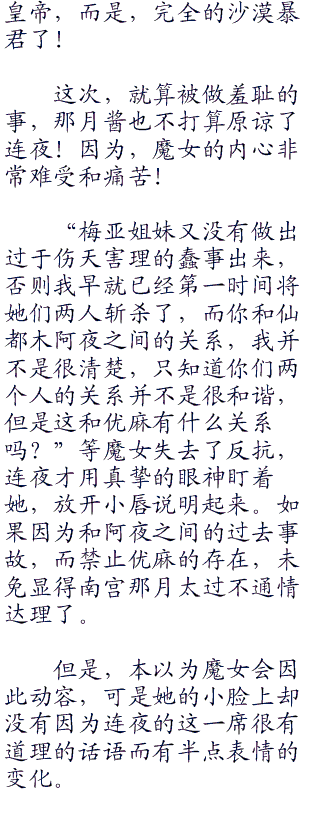 皇帝，而是，完全的沙漠暴
君了！
这次，就算被做羞耻的
事，那月酱也不打算原谅了
连夜！因为，魔女的内心非
常难受和痛苦！
“梅亚姐妹又没有做出
过于伤天害理的蠢事出来，
否则我早就已经第一时间将
她们两人斩杀了，而你和仙
都木阿夜之间的关系，我并
不是很清楚，只知道你们两
个人的关系并不是很和谐，
但是这和优麻有什么关系
吗？”等魔女失去了反抗，
连夜才用真挚的眼神盯着
她，放开小唇说明起来。如
果因为和阿夜之间的过去事
故，而禁止优麻的存在，未
免显得南宫那月太过不通情
达理了。
但是，本以为魔女会因
此动容，可是她的小脸上却
没有因为连夜的这一席很有
道理的话语而有半点表情的
变化。